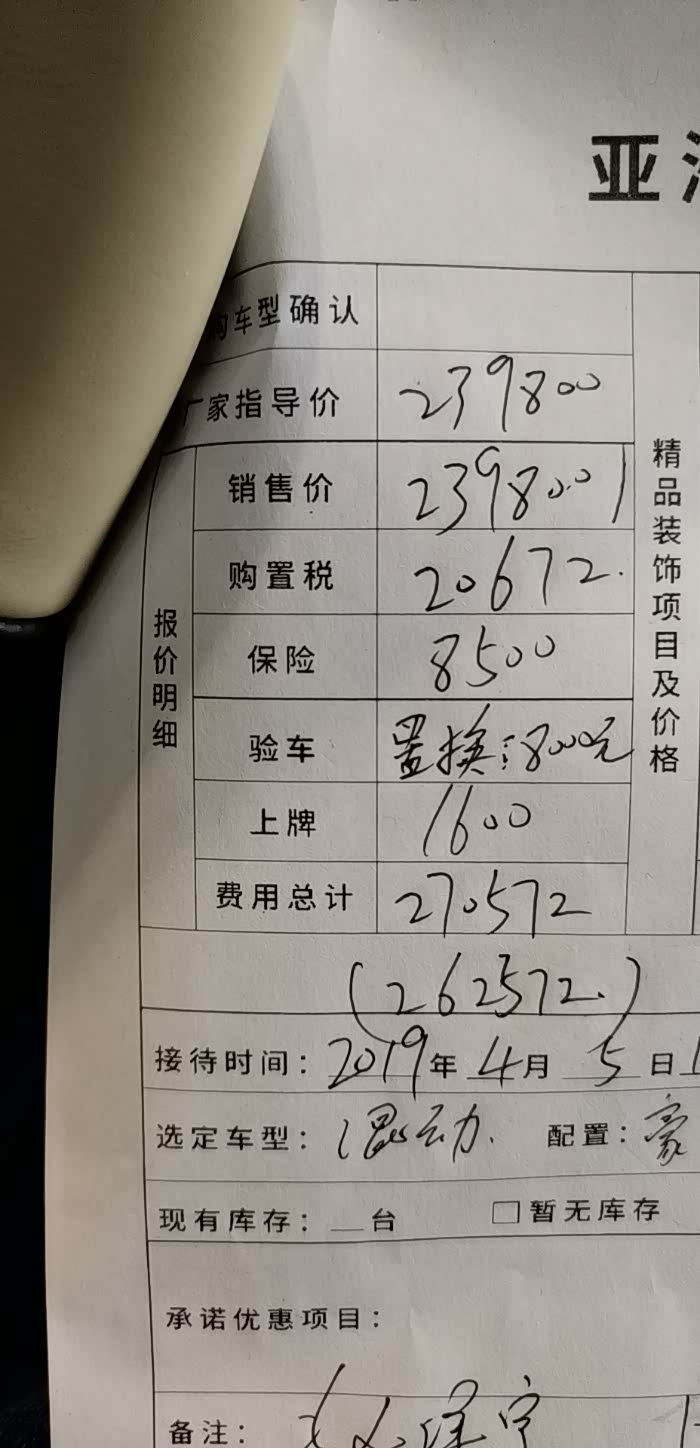 亚
购车型确认
厂家指导价 239800
销售价 239800
购置税 20672.
保险 8500
验车 置换:8000元
上牌 1600
费用总计 270572
(262572.)
报价明细
精品装饰项目及价格
接待时间: 2019年 4月 5日
选定车型: 混动. 配置: 豪
现有库存: 台 □暂无库存
承诺优惠项目:
备注: